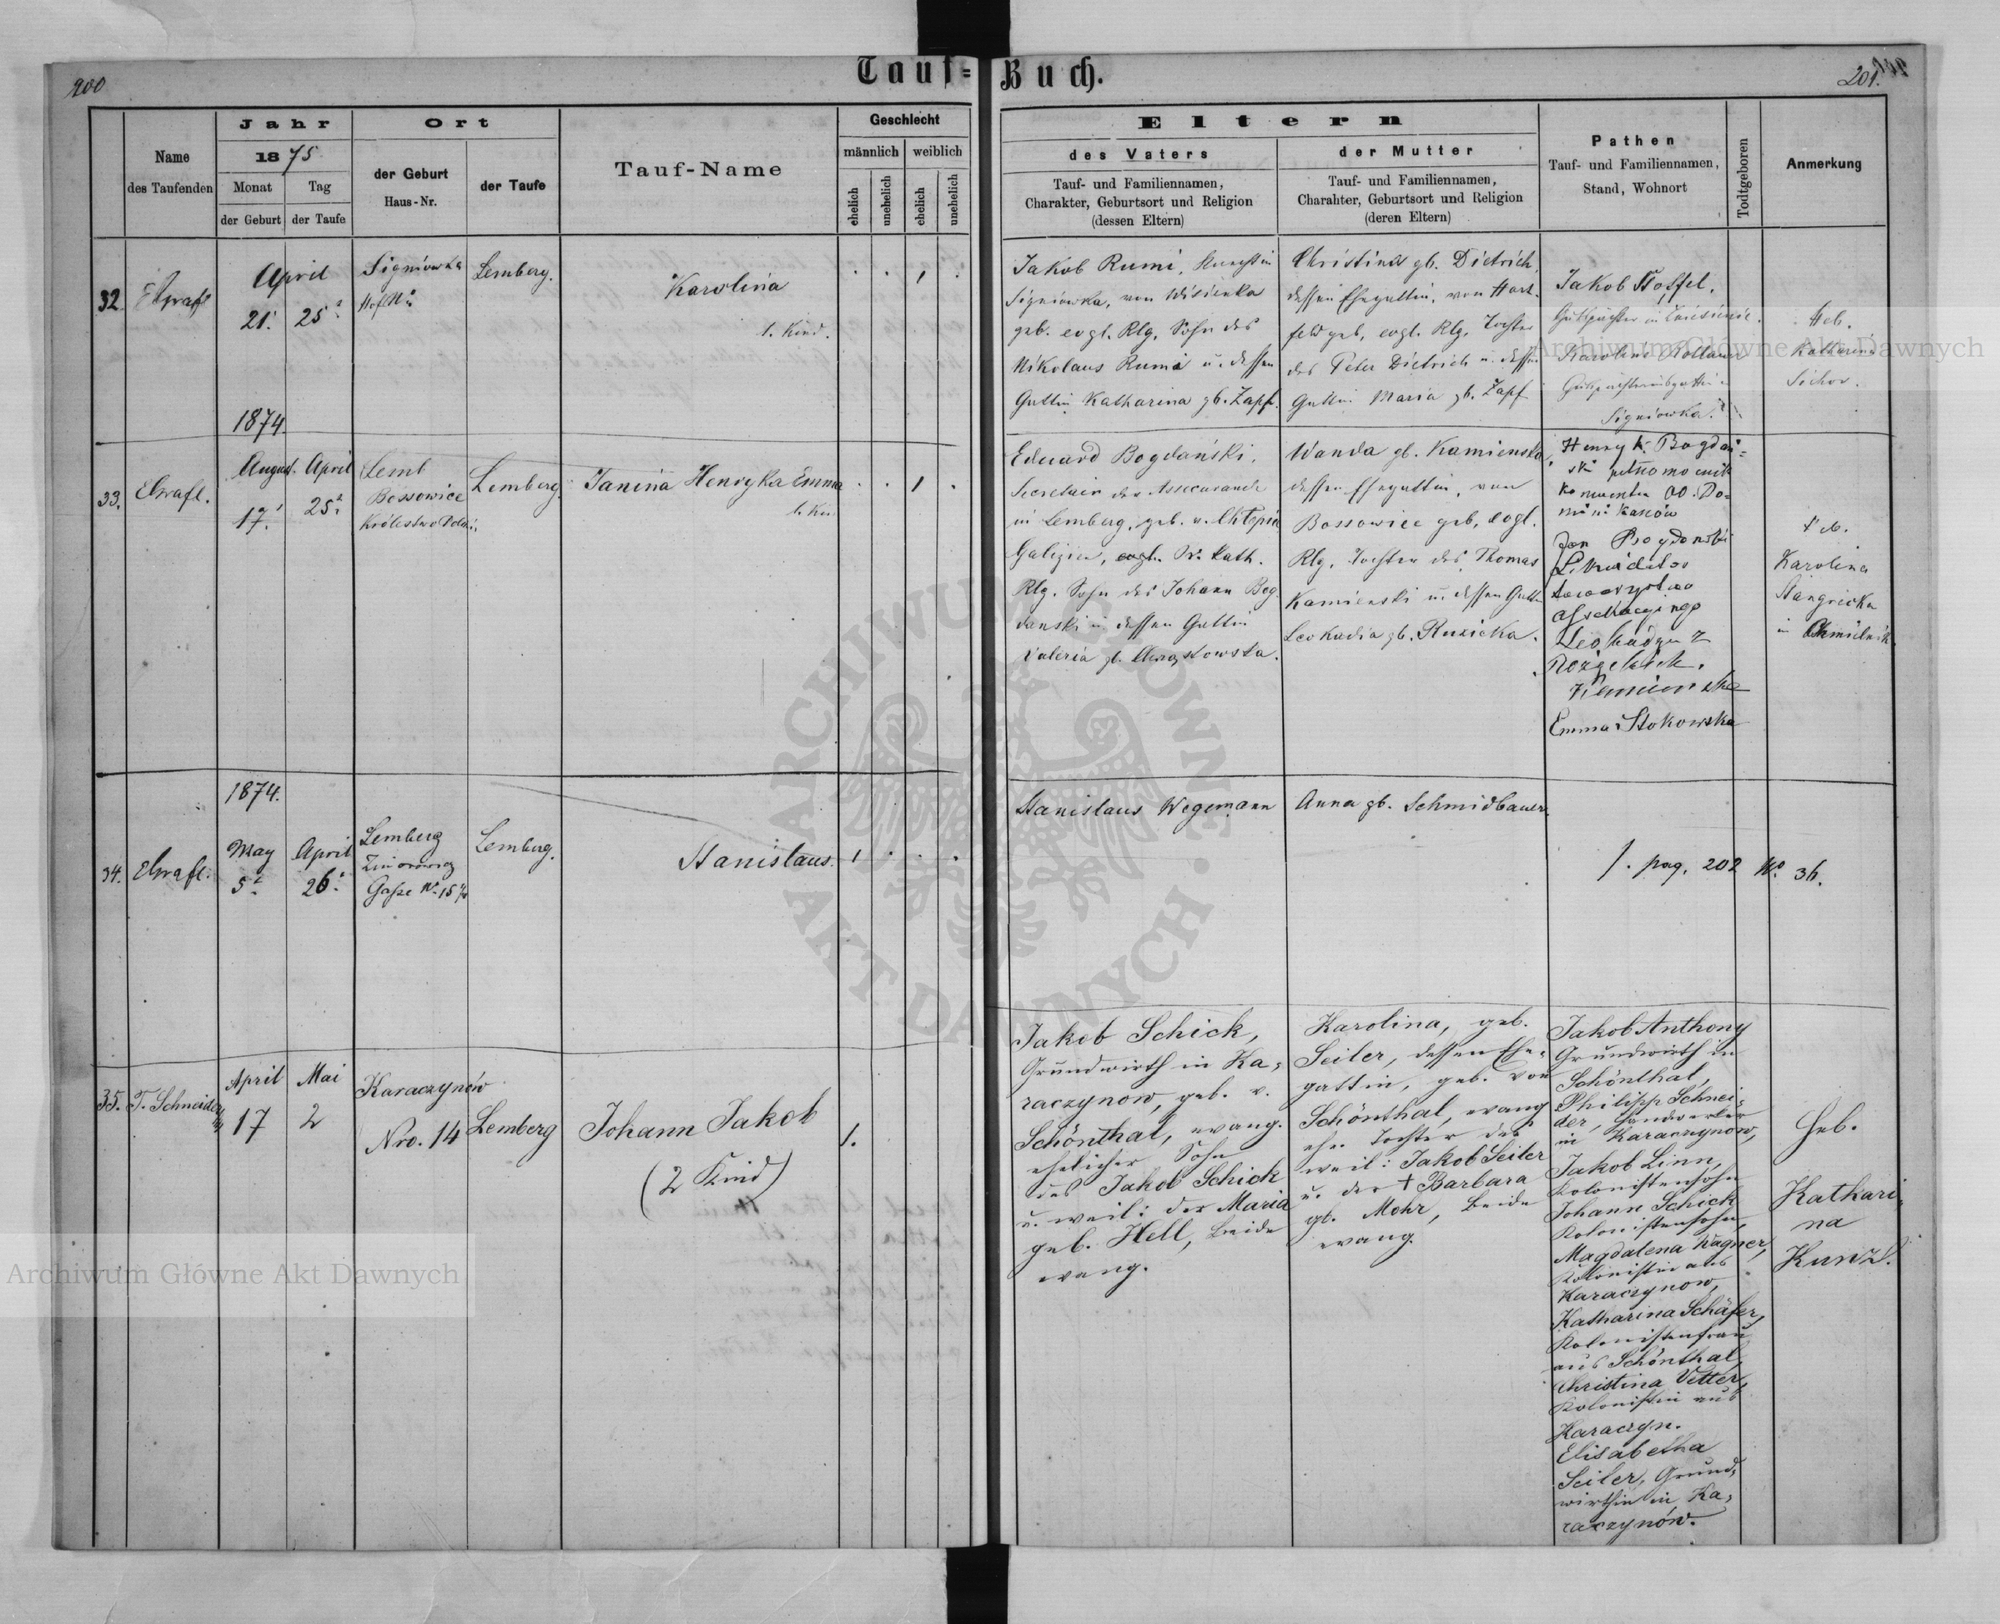 200
Tauf=Buch.
201.
Name
des Taufenden
Jahr
1875
Monat
Tag
der Geburt
der Taufe
Ort
der Geburt
Haus-Nr.
der Taufe
Tauf-Name
Geschlecht
männlich
weiblich
ehelich
unehelich
ehelich
unehelich
Eltern
des Vaters
Tauf- und Familiennamen,
Charakter, Geburtsort und Religion
(dessen Eltern)
der Mutter
Tauf- und Familiennamen,
Charakter, Geburtsort und Religion
(deren Eltern)
Pathen
Tauf- und Familiennamen,
Stand, Wohnort
Todtgeboren
Anmerkung
32.
April
21.
25
Signiowka
Lemberg.
Karolina
1. Kind.
Jakob Rumi,
Signiowka, von Wisienka
geb. evgl. Rlg. Sohn des
Nikolaus Rumi u. dessen
Gattin Katharina gb. Zapf.
Christina gb. Dietrich,
dessen Ehegattin, von Hart-
feld geb, evgl. Rlg. Tochter
des Peter Dietrich u. dessen
Gattin Maria gb. Zapf
Jakob Stoffel,
Karoline
Signiowka.
Heb.
Katharina
Sichor.
33.
1874.
August.
April
17.
25
Lemb
Bossowice
Królestwo
Lemberg.
Janina Henryka Emma
Eduard Bogdański,
Secretair der
in Lemberg, geb. v.
Galizien, Kath.
Rlg. Sohn des Johann Bog-
danski u. dessen Gattin
Valeria gb.
Wanda gb. Kamienska
dessen Ehegattin, von
Bossowice geb, evgl.
Rlg. Tochter des Thomas
Kamienski u. dessen Gattin
Leokadia gb. Rusicka.
Henryk Bogdań-
ski
OO. Do-
minikanów
Jan Bogdański
Leokadya z
Emma Stokowska
Heb.
Karolina
in Chmielnik
34.
1874.
May
5
April
26
Lemberg
Gasse
Lemberg.
Stanislaus.
1
Stanislaus Wegemann
Anna gb. Schmidbauer
/. pag. 202 No. 36.
35.
T. Schneider
April
17
Mai
2
Karaczynów
Nro. 14
Lemberg
Johann Jakob
(2 Kind)
1.
Jakob Schick,
Grundwirth in Ka-
raczynow, geb. v.
Schönthal, evang.
ehelicher Sohn
des Jakob Schick
u. weil: der Maria
geb. Hell, beide
evang.
Karolina, geb.
Seiler, dessen Ehe-
gattin, geb. von
Schönthal, evang
ehe. Tochter des
weil: Jakob Seiler
u. der † Barbara
gb. Mohr, beide
evang.
Jakob Anthony
Grundwirth in
Schönthal,
Philipp Schnei-
der, Handwerker
in Karaczynow,
Jakob Linn,
Kolonistensohn
Johann Schick
Kolonistensohn,
Magdalena Wagner,
Kolonistin aus
Karaczynow,
Katharina Schäfer,
Kolonistenfrau
aus Schönthal,
Christina Vetter,
Kolonistin aus
Karaczyn.
Elisabetha
Seiler, Grund-
wirthin in Ka-
raczynów.
Heb.
Kathari-
na
Kunz.
Archiwum Główne Akt Dawnych
Archiwum Główne Akt Dawnych
ARCHIWUM GŁÓWNE AKT DAWNYCH